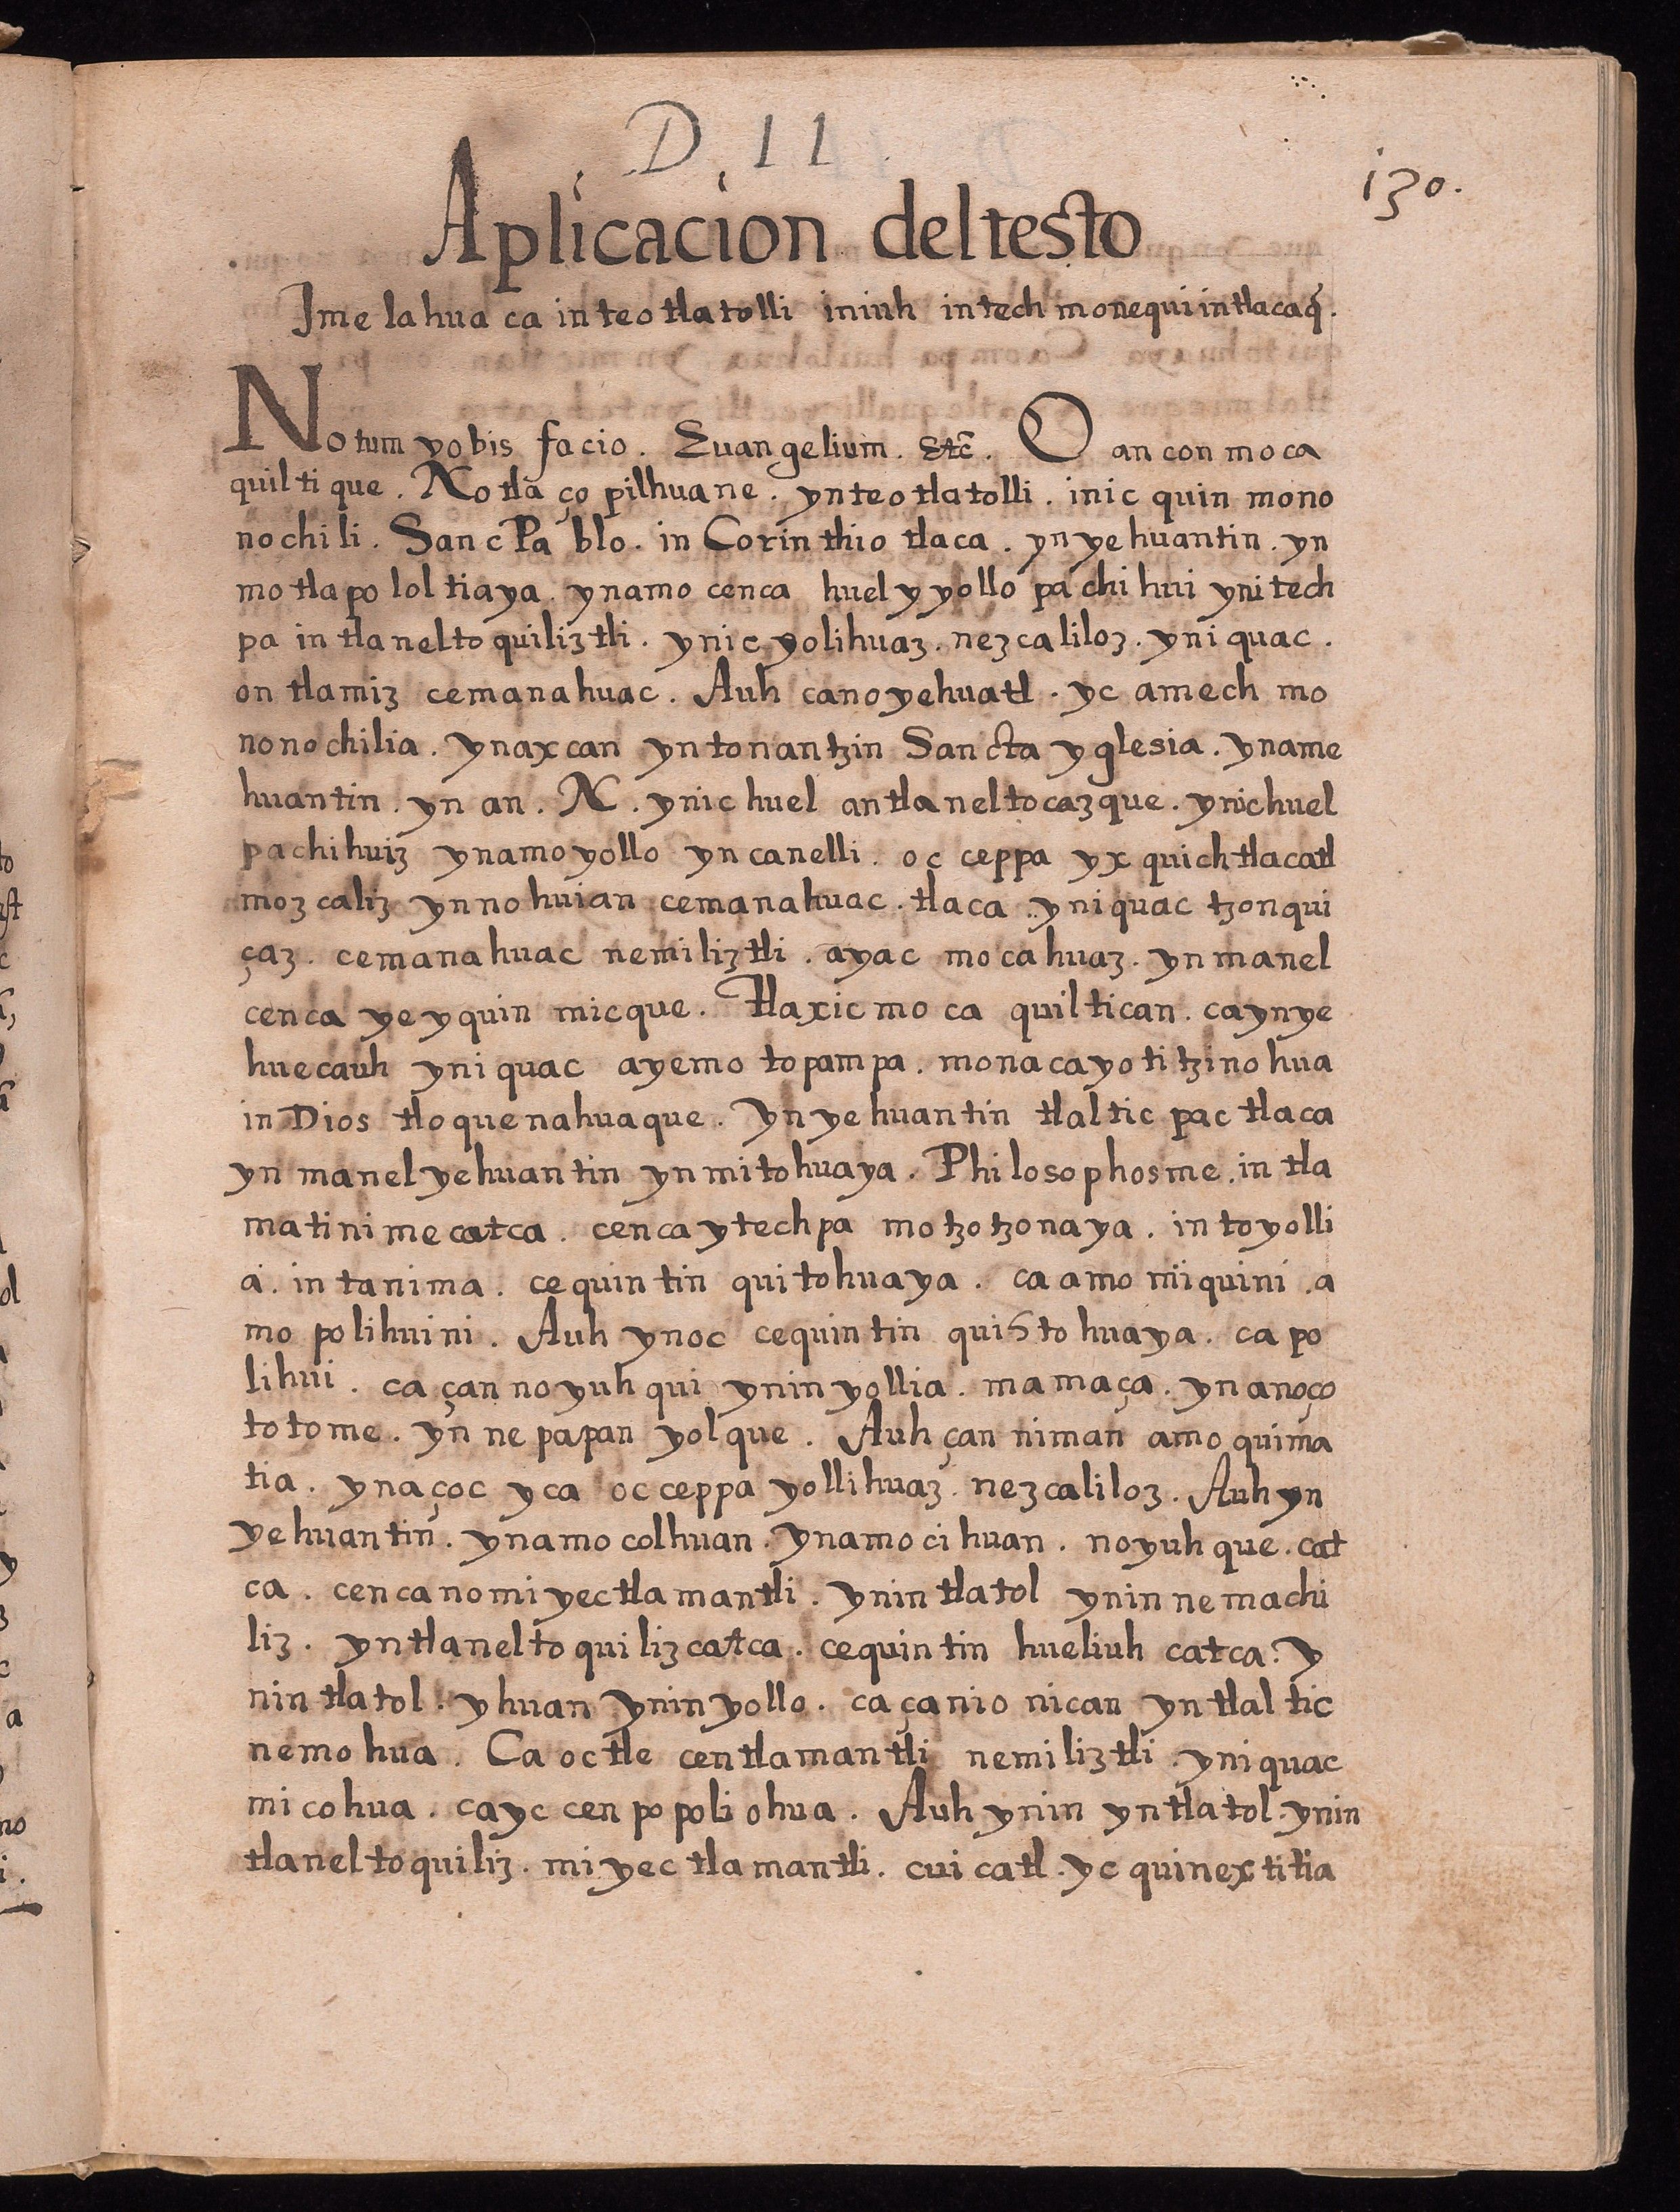 D. 11.
130.
Aplicacion deltesto
Jme la hua ca in teo tla tolli iniuh intech monequi in tlacaq̃.
Notum vobis facio. Euangelium. etc̃. O an con mo ca
quilti que. No tla ço pilhuane. ynteo tlatolli. inic quin mono
nochili. Sanc Pa blo. in Corinthio tlaca. yn yehuantin. yn
mo tla po lol tiaya. ynamo cenca huel y yollo pachi hui ynitech
pa in tla nelto quiliztli. ynic yolihuaz. nezcaliloz. yni quac.
on tlamiz cemanahuac. Auh canoyehuatl. yc amech mo
nonochilia. ynaxcan yntonantzin Sancta yglesia. yname
huantin. yn an. N. ynic huel antlaneltocazque. ynic huel
pachihuiz ynamoyollo yn canelli. oc ceppa yx quich tlacatl
moz caliz ynnohuian cemanahuac. tlaca. yni quac tzonqui
çaz. cemanahuac nemiliztli. ayac mo cahuaz. yn manel
cenca ye yquin micque. Tlaxic mo ca quiltican. caynye
huecauh yni quac ayemo topampa. monacayotitzino hua
in Dios tloquenahuaque. Yn ye huantin tlaltic pac tlaca
yn manel yehuantin yn mitohuaya. Philosophosme. in tla
matini me catca. cenca ytechpa motzotzonaya. in toyolli
a. in tanima. cequintin quitohuaya. ca amo miquini. a
mo polihuini. Auh ynoc cequintin quistohuaya. ca po
lihui. ca çan no yuh qui ynin yollia. mamaça. yn anoço
totome. yn ne papan yolque. Auh çan niman amo quima
tia. ynaçoc yca oc ceppa yollihuaz. nezcaliloz. Auh yn
yehuantin. ynamo colhuan. ynamo ci huan. noyuh que. cat
ca. cenca nomiyectlamantli. ynin tlatol ynin nemachi
liz. yntlanelto quiliz catca. cequintin hueliuh catca. y
nin tlatol. yhuan ynin yollo. ca çanio nican yn tlal tic
nemo hua. Ca oc tle centlamantli nemiliztli. yni quac
mi cohua. cayc cen po poli ohua. Auh ynin yntlatol. ynin
tlanelto quiliz. mi yec tla mantli. cui catl. yc quinex titia